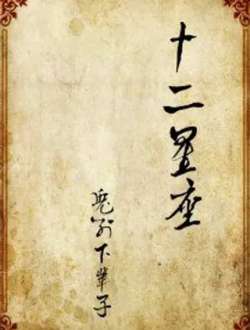 十二星座
下輩子